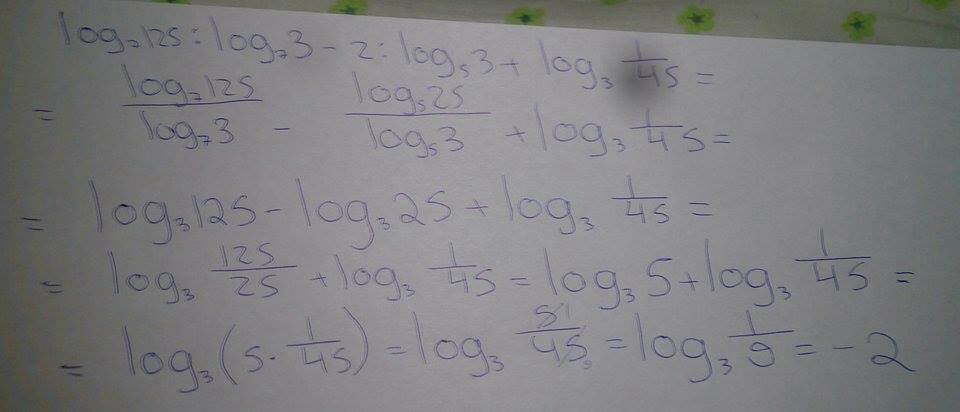 log₇125 : log₇3 - 2 : log₅3 + log₃ 1/45 =
= log₇125/log₇3 - log₅25/log₅3 + log₃ 1/45 =
= log₃125 - log₃25 + log₃ 1/45 =
= log₃ 125/25 + log₃ 1/45 = log₃5 + log₃ 1/45 =
= log₃(5 · 1/45) = log₃ 5/45 = log₃ 1/9 = -2